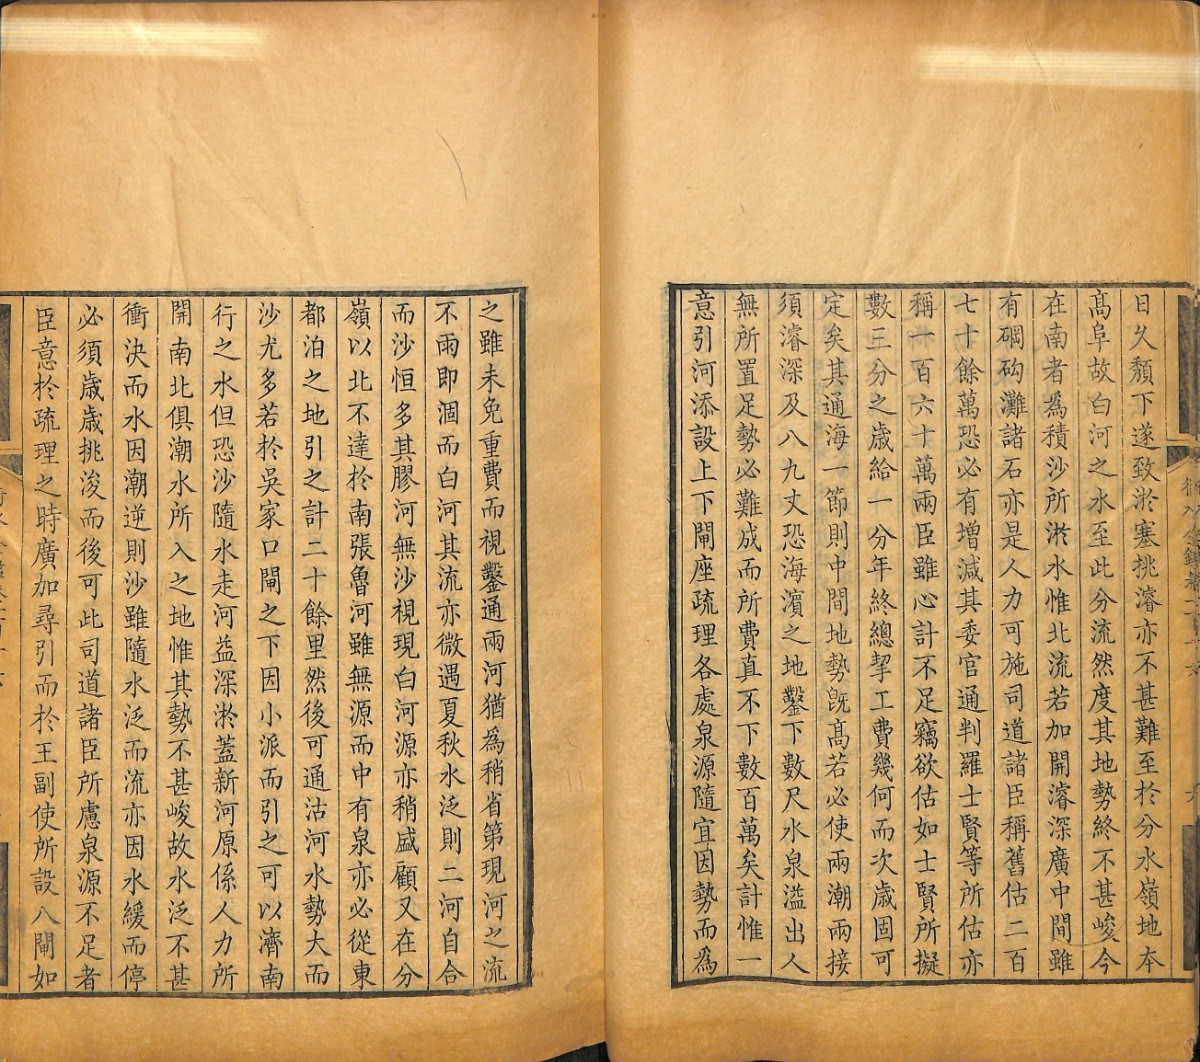 日久頽下遂致淤塞挑濬亦不甚難至於分水嶺地本
髙阜故白河之水至此分流然度其地勢終不甚峻今
在南者為積沙所淤水惟北流若加開濬深廣中間雖
有碙砄灘諸石亦是人力可施司道諸臣稱舊估二百
七十餘萬恐必有增減其委官通判羅士賢等所估亦
稱一百六十萬兩臣雖心計不足竊欲估如士賢所擬
數三分之歳給一分年終總挈工費幾何而次歳固可
定矣其通海一節則中間地勢旣髙若必使兩潮兩接
須濬深及八九丈恐海濱之地鑿下數尺水泉溢出人
無所置足勢必難成而所費直不下數百萬矣計惟一
意引河添設上下閘座疏理各處泉源隨宜因勢而為
之雖未免重費而視鑿通兩河猶為稍省第現河之流
不雨即涸而白河其流亦微遇夏秋水泛則二河自合
而沙恒多其膠河無沙視現白河源亦稍盛顧又在分
嶺以北不達於南張魯河雖無源而中有泉亦必從東
都泊之地引之計二十餘里然後可通沽河水勢大而
沙尤多若於吳家口閘之下因小派而引之可以濟南
行之水但恐沙隨水走河益深淤蓋新河原係人力所
開南北俱潮水所入之地惟其勢不甚峻故水泛不甚
衝決而水因潮逆則沙雖隨水泛而流亦因水緩而停
必須歳歳挑浚而後可此司道諸臣所慮泉源不足者
臣意於疏理之時廣加尋引而於王副使所設八閘如